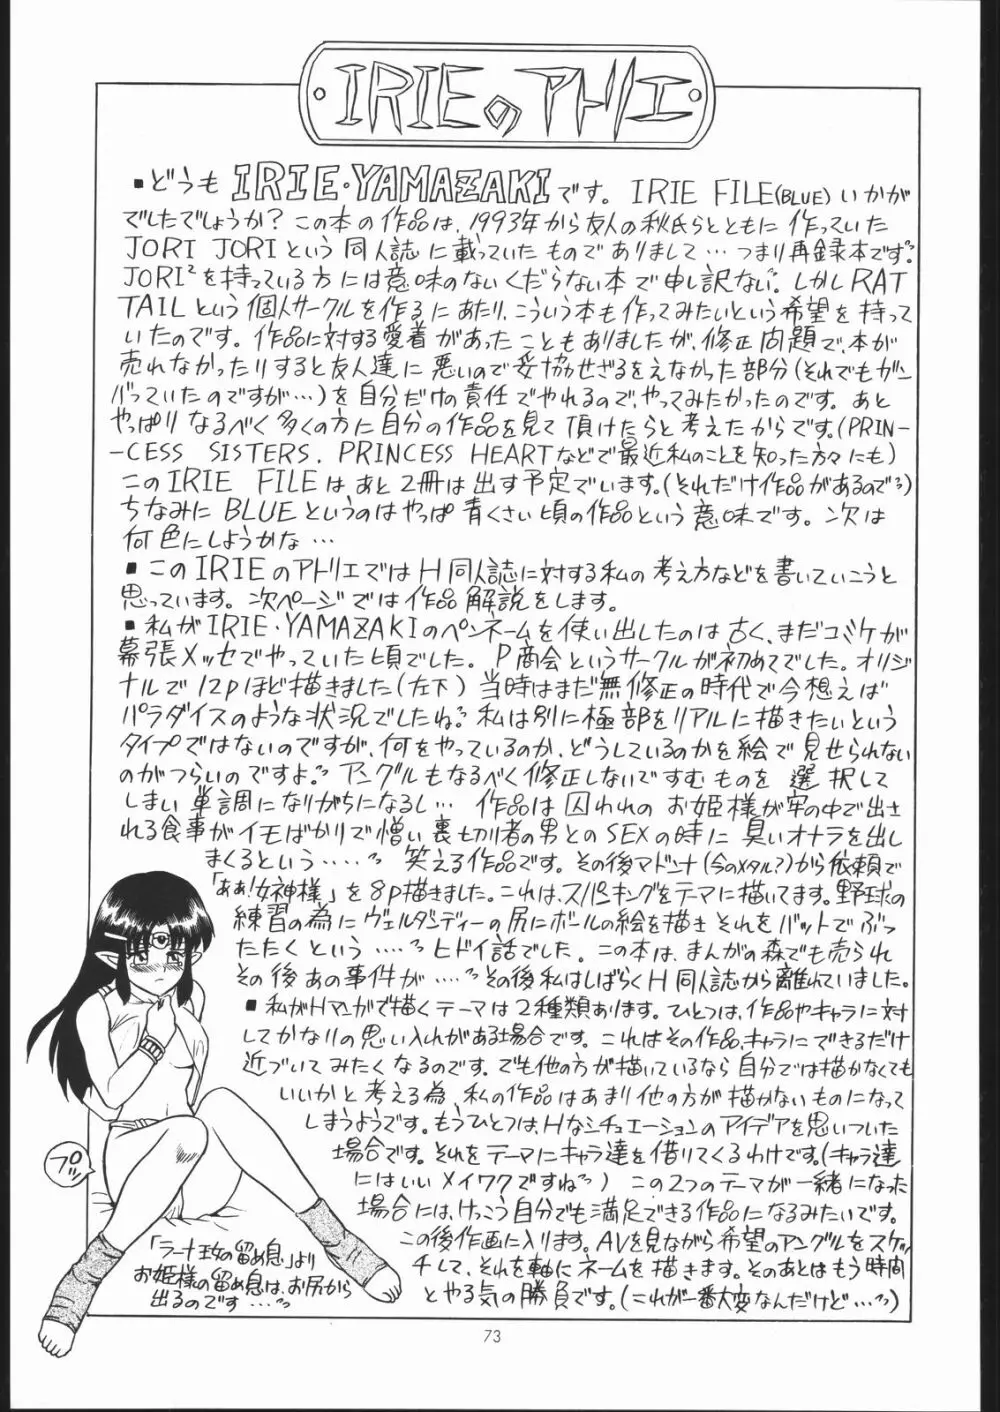 IRIEのアトリエ
■どうも IRIE・YAMAZAKIです。 IRIE FILE(BLUE) いかが
でしたでしょうか？この本の作品は、1993年から友人の秋氏らとともに作っていた
JORI JORIという同人誌に載っていたものでありまして…つまり再録本です。
JORI²を持っている方には意味のないくだらない本で申し訳ない。しかしRAT
TAILという個人サークルを作るにあたり、こういう本も作ってみたいという希望を持って
いたのです。作品に対する愛着があったこともありましたが、修正問題で、本が
売れなかったりすると友人達に悪いので妥協せざるをえなかった部分(それでもガン
バっていたのですが…)を自分だけの責任でやれるので、やってみたかったのです。あと
やっぱりなるべく多くの方に自分の作品を見て頂けたらと考えたからです。(PRIN-
-CESS SISTERS. PRINCESS HEARTなどで最近私のことを知った方々にも)
このIRIE FILEはあと2冊は出す予定でいます。(それだけ作品があるので)
ちなみにBLUEというのはやっぱ青くさい頃の作品という意味です。次は
何色にしようかな…
■このIRIEのアトリエではH同人誌に対する私の考え方などを書いていこうと
思っています。次ページでは作品解説をします。
■私がIRIE・YAMAZAKIのペンネームを使い出したのは古く、まだコミケが
幕張メッセでやっていた頃でした。P商会というサークルが初めてでした。オリジ
ナルで12pほど描きました(左下)当時はまだ無修正の時代で今想えば
パラダイスのような状況でしたね。私は別に極部をリアルに描きたいという
タイプではないのですが、何をやっているのか、どうしているのかを絵で見せられない
のがつらいのですよ。アングルもなるべく修正しないですむものを選択して
しまい単調になりがちになるし… 作品は囚われのお姫様が牢の中で出さ
れる食事がイモばかりで憎い裏切り者の男とのSEXの時に臭いオナラを出し
まくるという…… 笑える作品です。その後マドンナ(今のメタル？)から依頼で
「ああ！女神様」を8p描きました。これは、スパンキングをテーマに描いてます。野球の
練習の為にヴェルダンディーの尻にボールの絵を描きそれをバットでぶっ
たたくという…… ヒドイ話でした。この本は、まんがの森でも売られ
その後あの事件が…… その後私はしばらくH同人誌から離れていました。
■私がHマンガで描くテーマは2種類あります。ひとつは、作品やキャラに対
してかなりの思い入れがある場合です。これはその作品、キャラにできるだけ
近づいてみたくなるのです。でも他の方が描いているなら自分では描かなくても
いいかと考える為、私の作品はあまり他の方が描かないものになって
しまうようです。もうひとつは、Hなシチュエーションのアイデアを思いついた
場合です。それをテーマにキャラ達を借りてくるわけです。(キャラ達
にはいいメイワクですね) この2つのテーマが一緒になった
場合には、けっこう自分でも満足できる作品になるみたいです。
この後作画に入ります。AVを見ながら希望のアングルをスケッ
チして、それを軸にネームを描きます。そのあとはもう時間
とやる気の勝負です。(これが一番大変なんだけど…)
プゥ
「ラーナ王女の留め息」より
お姫様の留め息は、お尻から
出るのです……
73